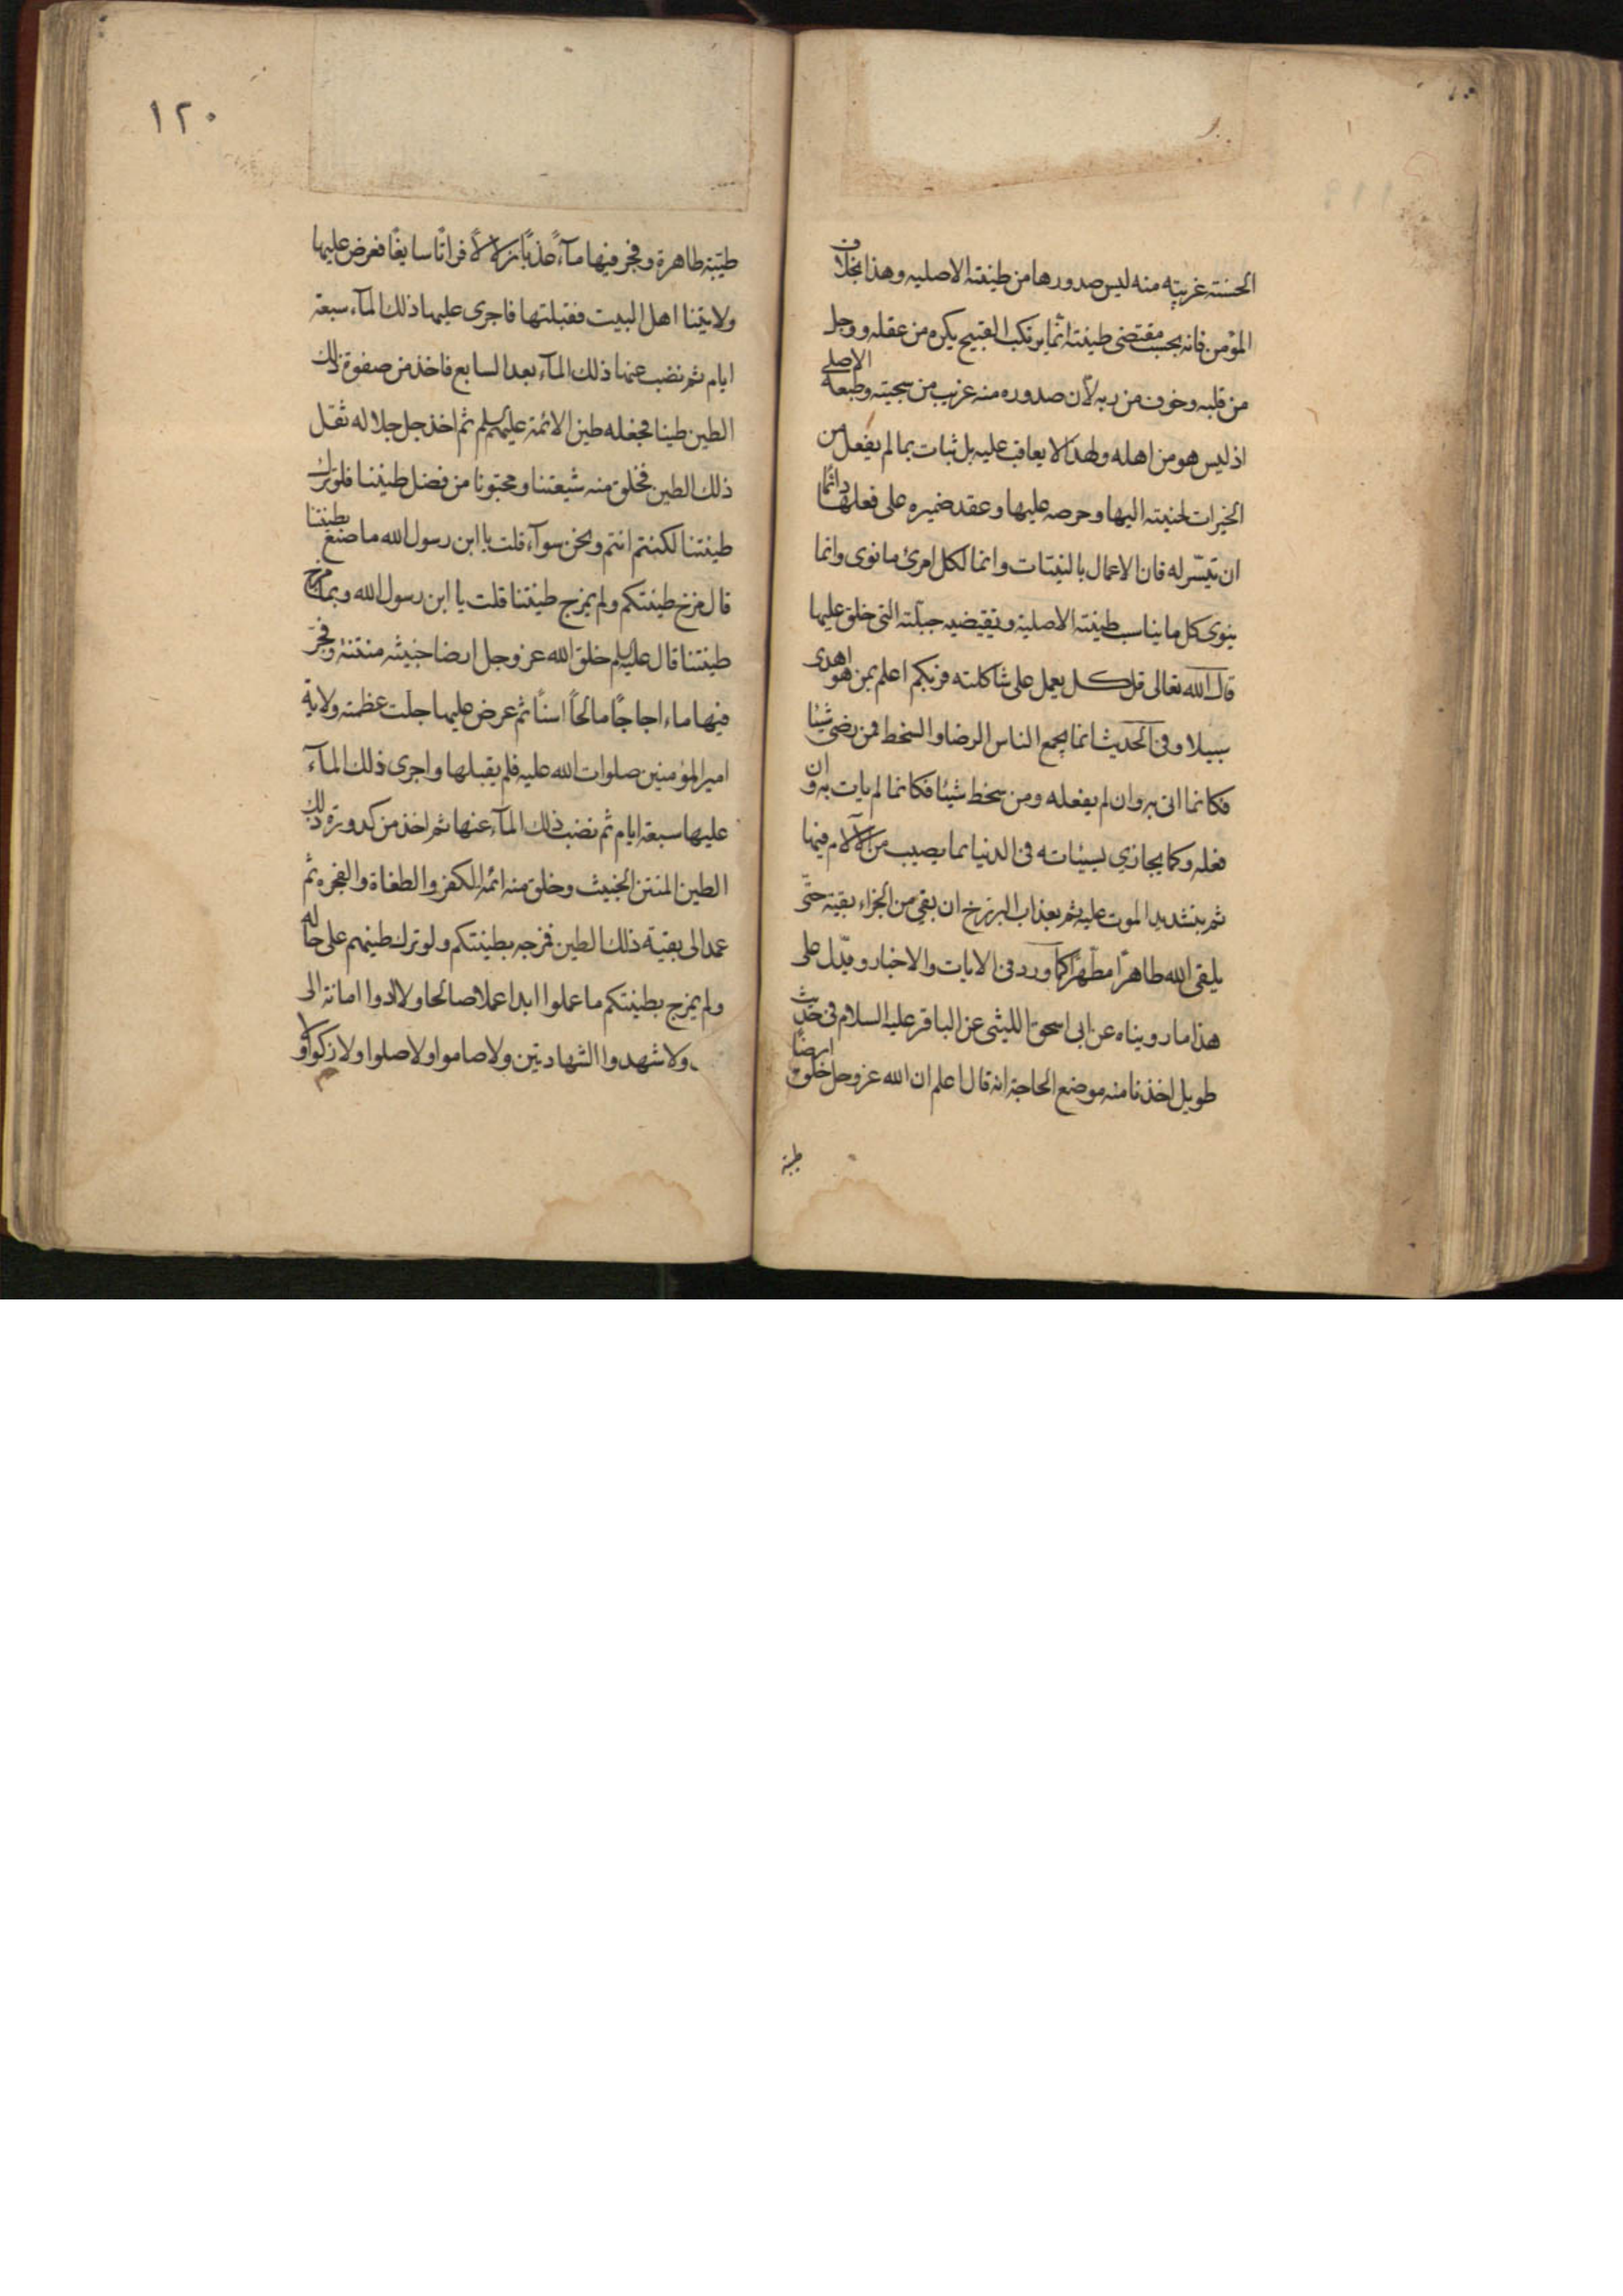 الحسنة غريبة منه ليس صدورها من طينته الاصليه وهذا بخلاف
المؤمن فانه بحسب مقتضى طينته انما يرتكب القبيح بكره من عقله ووجل
من قلبه وخوف من ربه لان صدوره منه غريب من سجيته وطبعه الاصلي
اذ ليس هو من اهله ولهذا لا يعاقب عليه بل يثاب بما لم يفعل من
الخيرات لحنينه اليها وحرصه عليها وعقد ضميره على فعلها دائما
ان تيسّر له فان الاعمال بالنيات وانما لكل امرئ ما نوى وانما
ينوى كل ما يناسب طينته الاصلية وتقتضيه جبلّته التى خلق عليها
قال الله تعالى قل كل يعمل على شاكلته فربكم اعلم بمن هو اهدى
سبيلا وفى الحديث انما يجمع الناس الرضا والسخط فمن رضى شيئا
فكانما اتى به وان لم يفعله ومن سخط شيئا فكانما لم يات به وان
فعله وكما يجازي بسيئاته فى الدنيا بما يصيب من الآلام فيها
ثم بتشديد الموت عليه ثم بعذاب البرزخ ان بقى من الجزاء بقية حتّى
يلقى الله طاهرًا مطهّرًا كما ورد فى الايات والاخبار ويدّل على
هذا ما رويناه عن ابى اسحق الليثى عن الباقر عليه السلام فى حديث
طويل اخذنا منه موضع الحاجة انه قال اعلم ان الله عز وجل خلق ارضًا
طيبة
١٢٠
طيّبة طاهرة وفجر فيها مآءً عذبًا زلالاً فراتًا سايغًا فعرض عليها
ولايتنا اهل البيت فقبلتها فاجرى عليها ذلك المآء سبعة
ايام ثم نضب عنها ذلك المآء بعد السابع فاخذ من صفوة ذلك
الطين طينا فجعله طين الائمة عليهم السلم ثم اخذ جل جلاله ثقل
ذلك الطين فخلق منه شيعتنا ومحبونا من فضل طينتنا فلو ترك
طينتنا لكنتم انتم ونحن سوآء قلت يا ابن رسول الله ما صنع بطينتنا
قال مزج طينتكم ولم يمزج طينتنا قلت يا ابن رسول الله وبما مزج
طينتنا قال عليه السلم خلق الله عز وجل ارضا خبيثه منتنة وفجّر
فيها ماء اجاجًا مالحًا اسنًا ثم عرض عليها جلت عظمته ولاية
امير المؤمنين صلوات الله عليه فلم يقبلها واجرى ذلك المآء
عليها سبعة ايام ثم نضب ذلك المآء عنها ثم اخذ من كدورة ذلك
الطين المنتن الخبيث وخلق منه ائمة الكفر والطغاة والفجره ثم
عمد الى بقية ذلك الطين فمزجه بطينتكم ولو ترك طينهم على حاله
ولم يمزج بطينتكم ما عملوا ابدا عملا صالحا ولا ادوا امانة الى
ولا شهدوا الشهادتين ولا صاموا ولا صلوا ولا زكوا ولا